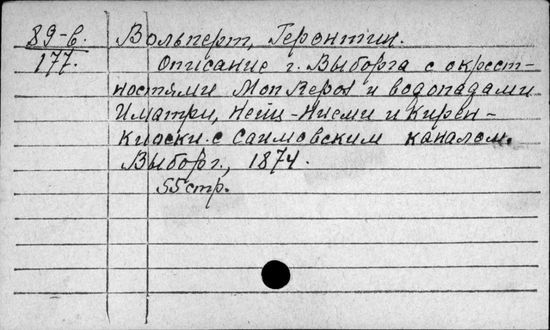 89-в. Вольперт, Геронтии.
177. Описание г. Выборга с окрест-
ностями Mon Repos и водопадами
Иматри, Нейи-Ниеми и Кирен-
киоски с Саимовским каналом.
Выборг, 1874.
55 стр.